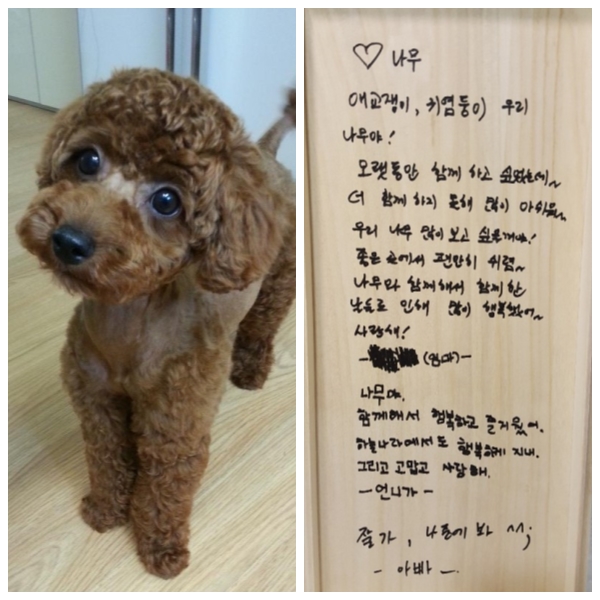 ♡ 나무
애교쟁이, 귀염둥이 우리
나무야!
오랫동안 함께 하고 싶었는데~
더 함께 하지 못해 많이 아쉬워~
우리 나무 많이 보고 싶을꺼야!
좋은 곳에서 편안히 쉬렴~
나무와 함께해서 함께한
날들로 인해 많이 행복했어~
사랑해!
- (엄마) -
나무야.
함께해서 행복하고 즐거웠어.
하늘나라에서도 행복하게 지내.
그리고 고맙고 사랑해.
- 언니가 -
잘가, 나중에 봐 ^^;
- 아빠 -